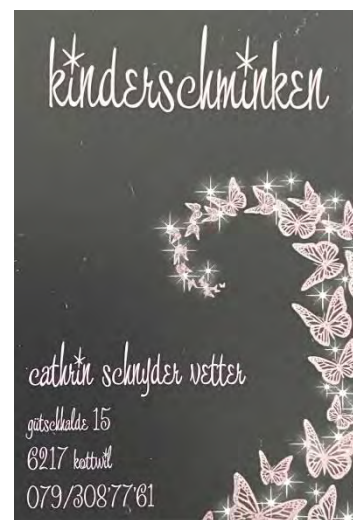 kinderschminken
cathrin schnyder vetter
gütschhalde 15
6217 kottwil
079/308'77'61